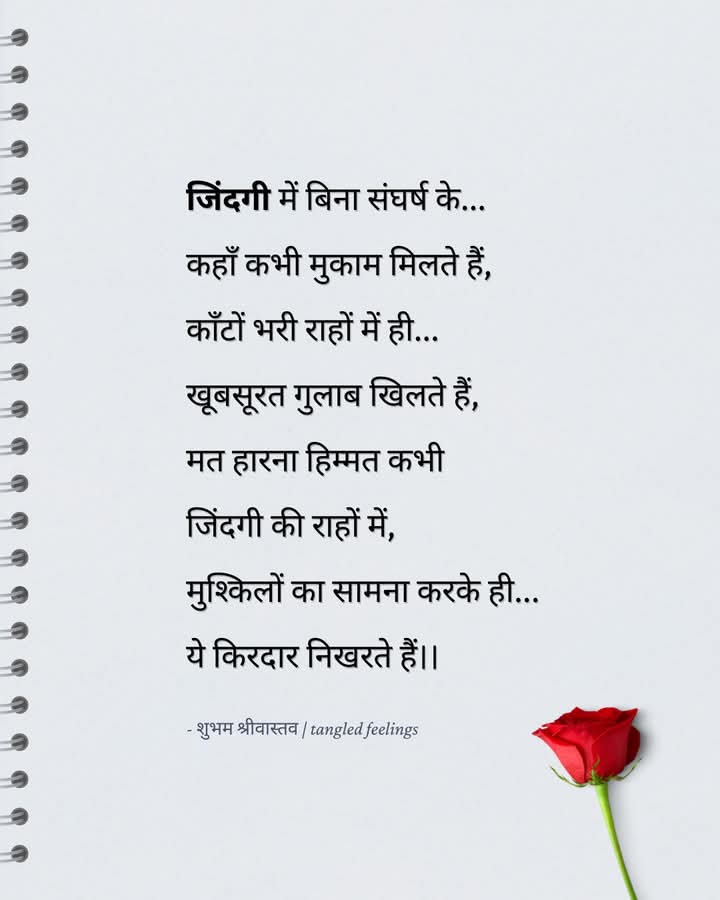 जिंदगी में बिना संघर्ष के...
कहाँ कभी मुकाम मिलते हैं,
काँटों भरी राहों में ही...
खूबसूरत गुलाब खिलते हैं,
मत हारना हिम्मत कभी
जिंदगी की राहों में,
मुश्किलों का सामना करके ही...
ये किरदार निखरते हैं।।
- शुभम श्रीवास्तव | tangled feelings